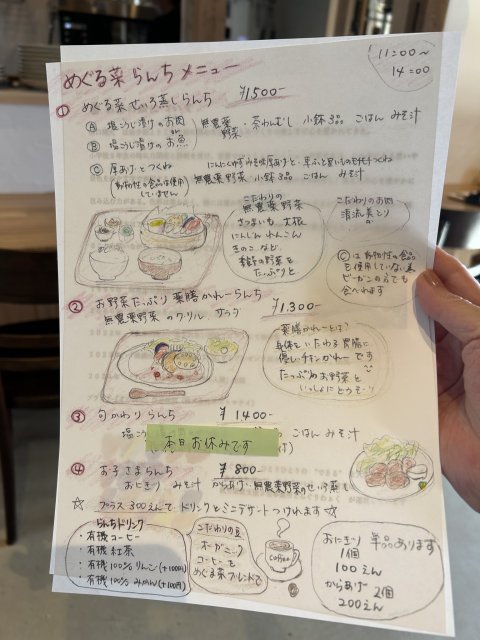 11:00〜
14:00
めぐる菜らんちメニュー
① めぐる菜せいろ蒸しらんち ¥1500-
Ⓐ 塩こうじ漬けのお肉
Ⓑ 塩こうじ漬けのお魚
無農薬野菜・茶わんむし 小鉢3品 ごはん みそ汁
Ⓒ 厚あげとつくね
(動物性の食品は使用していません)
にんにくゆずみそ味厚あげと・豆ふと里いものもちもちつくね
無農薬野菜 小鉢3品 ごはん みそ汁
こだわりの
無農薬野菜
さつまいも、大根
にんじん、れんこん
きのこなど、
季節の野菜を
たっぷりと
こだわりのお肉
清流美どり
Ⓒは動物性の食品
を使用していない為
ビーガンの方でも
食べれます
② お野菜たっぷり 薬膳かれーらんち ¥1,300-
無農薬野菜のグリル サラダ
薬膳かれーとは?
身体をいたわる胃腸に
優しいチキンかれーです
たっぷりのお野菜と
いっしょにどうぞ
③ 旬かわりらんち ¥1400-
塩こ
本日お休みです
ごはん みそ汁
④ お子さまらんち ¥800-
おにぎり みそ汁 からあげ・無農薬野菜のせいろ蒸し
☆ プラス300えんで・ドリンクとミニデザートつけれます☆
らんちドリンク
・有機コーヒー
・有機紅茶
・有機100%りんご(+100円)
・有機100%みかん(+100円)
こだわりの豆
オーガニック
コーヒーを
めぐる菜ブレンドで
coffee
おにぎり 単品あります
1個
100えん
からあげ 2個
200えん